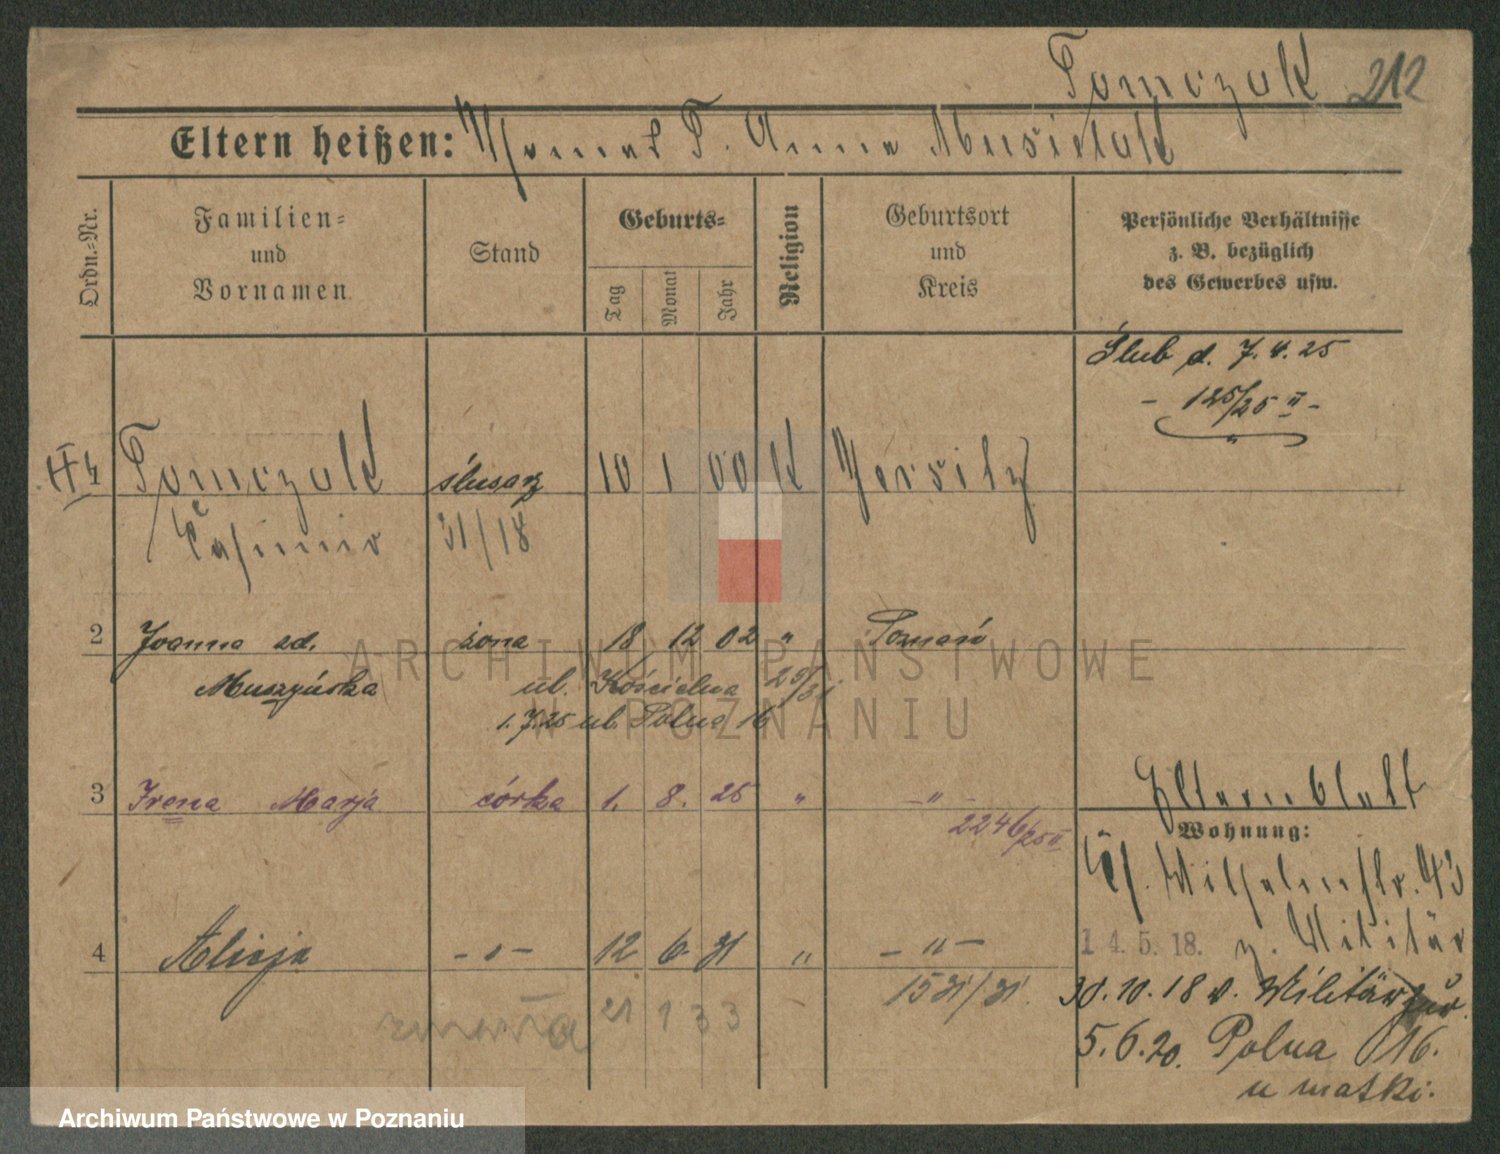 Tomczak 212
Eltern heißen: Thomas T. Anna Musielak
Ordn.-Nr.
Familien-
und
Vornamen
Stand
Geburts-
Tag
Monat
Jahr
Religion
Geburtsort
und
Kreis
Persönliche Verhältnisse
z. B. bezüglich
des Gewerbes usw.
Ślub d. 7.4.25
- 125/25 II -
Tomczak ślusarz 10 1 00 K Jersitz
Casimir 31/18
2 Joanna zd. żona 18 12 02 " Poznań
Muszyńska ul. Kościelna 29/31
1.7.25 ul. Polna 16
3 Irena Marja córka 1. 8. 25 " - " -
2246/25 II
Elternblatt
Wohnung:
Wilhelmstr. 43
14. 5. 18. z. Militär
4 Alicja - " - 12 6 31 " - " -
30.10.18 v. Militär zur.
zmarła 21 1 33
5.6.20. Polna 16.
u matki.
ARCHIWUM PAŃSTWOWE
W POZNANIU
Archiwum Państwowe w Poznaniu